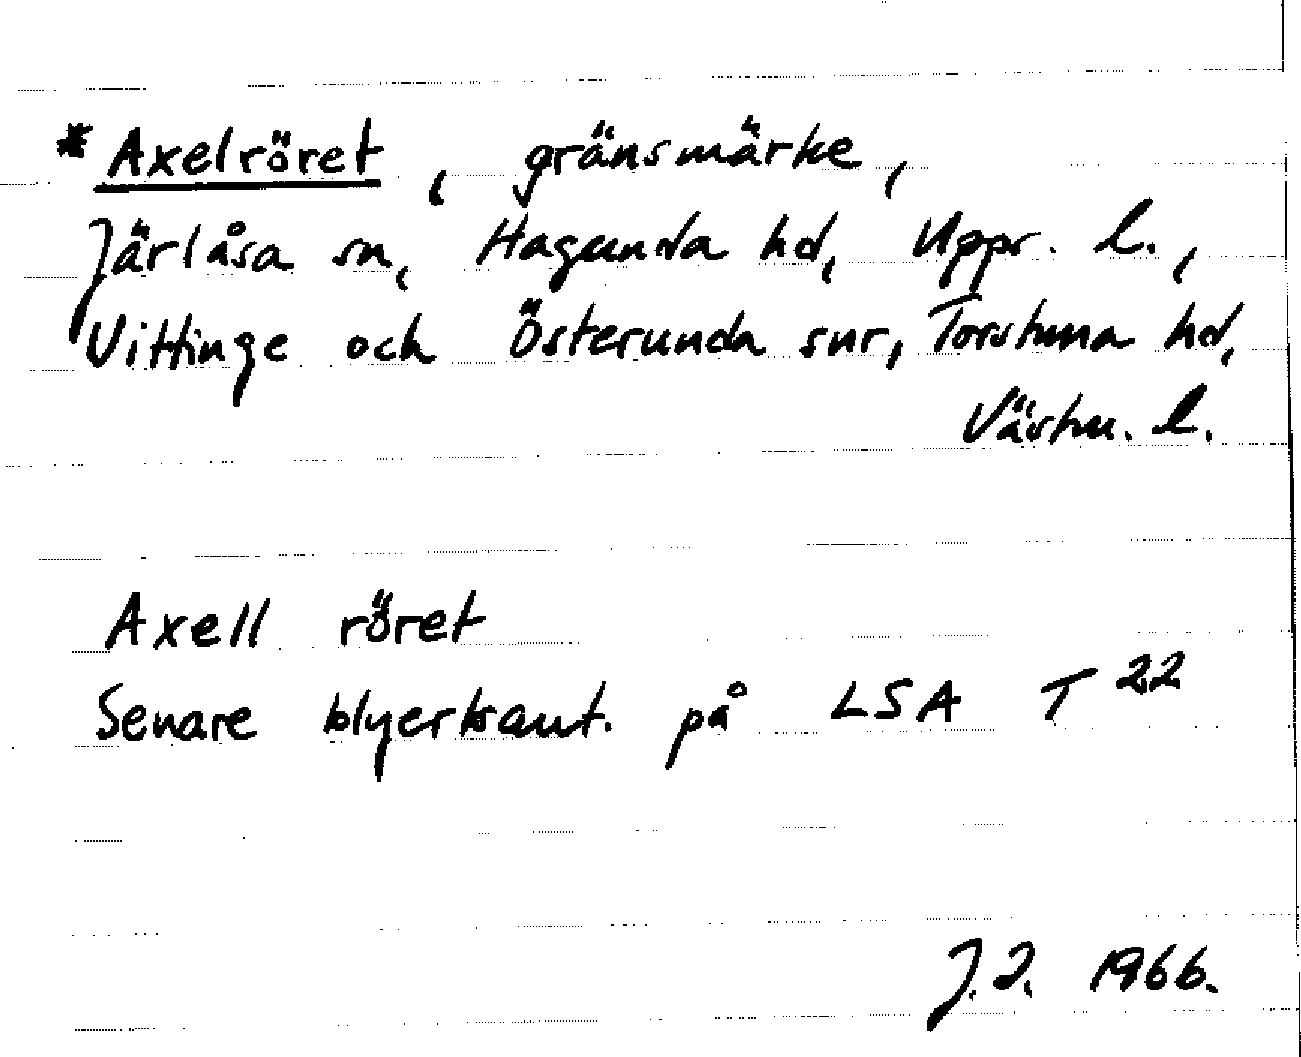 *Axelröret, gränsmärke,
Järlåsa sn, Hagunda hd, Upps. l.,
Vittinge och Österunda snr, Torstuna hd,
Västm. l.
Axell röret
Senare blyertsant. på LSA T 22
1966.